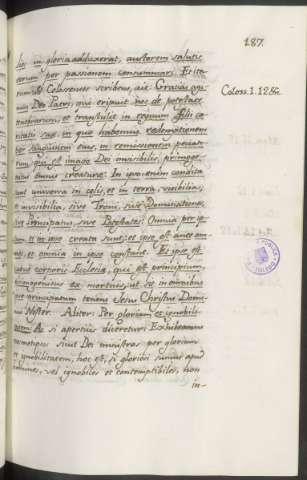 187.
lios in gloria adduxerat, auctorem salutis
eorum per passionem consummari. Et ite-
rum ad Colossenses scribens, ait: Gratias agi-
mus Deo Patri, qui eripuit nos de potestate
tenebrarum, et transtulit in regnum filii ca-
ritatis suae, in quo habemus redemptionem
per sanguinem eius, in remissionem pecca-
torum, qui est imago Dei invisibilis, primoge-
nitus omnis creaturae: In quo omnia condita
sunt universa in celis, et in terra, visibilia,
et invisibilia, sive Troni, sive Dominationes,
sive Principatus, sive Potestates: Omnia per ip-
sum et in ipso creata sunt; et ipse est ante om-
nes, et omnia in ipso constant. Et ipse est
caput corporis Ecclesiae, qui est principium,
primogenitus ex mortuis, ut sit in omnibus
ipse primatum tenens Jesus Christus Domi-
nus Noster. Aliter: Per gloriam et ignobili-
tatem. Ac si apertius diceretur: Exhibeamus
nosmetipsos sicut Dei ministros per gloriam
et ignobilitatem, hoc est, si gloriosi sumus apud
homines, vel ignobiles et contemptibiles, non
in-
Coloss. 1. 12 &c.